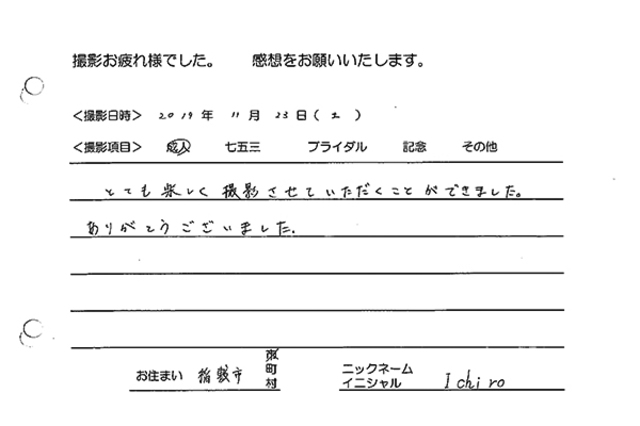 撮影お疲れ様でした。 感想をお願いいたします。
<撮影日時> 2019年 11月 23日(土)
<撮影項目> 成人 七五三 ブライダル 記念 その他
とても楽しく撮影させていただくことができました。
ありがとうございました.
お住まい 稲敷市 市町村 ニックネーム イニシャル Ichiro